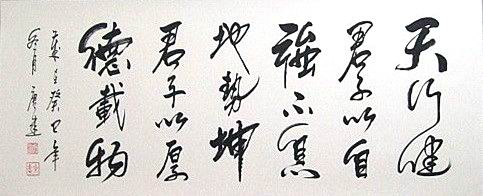 天行健
君子以自
強不息
地勢坤
君子以厚
德載物
癸巳年
冬月